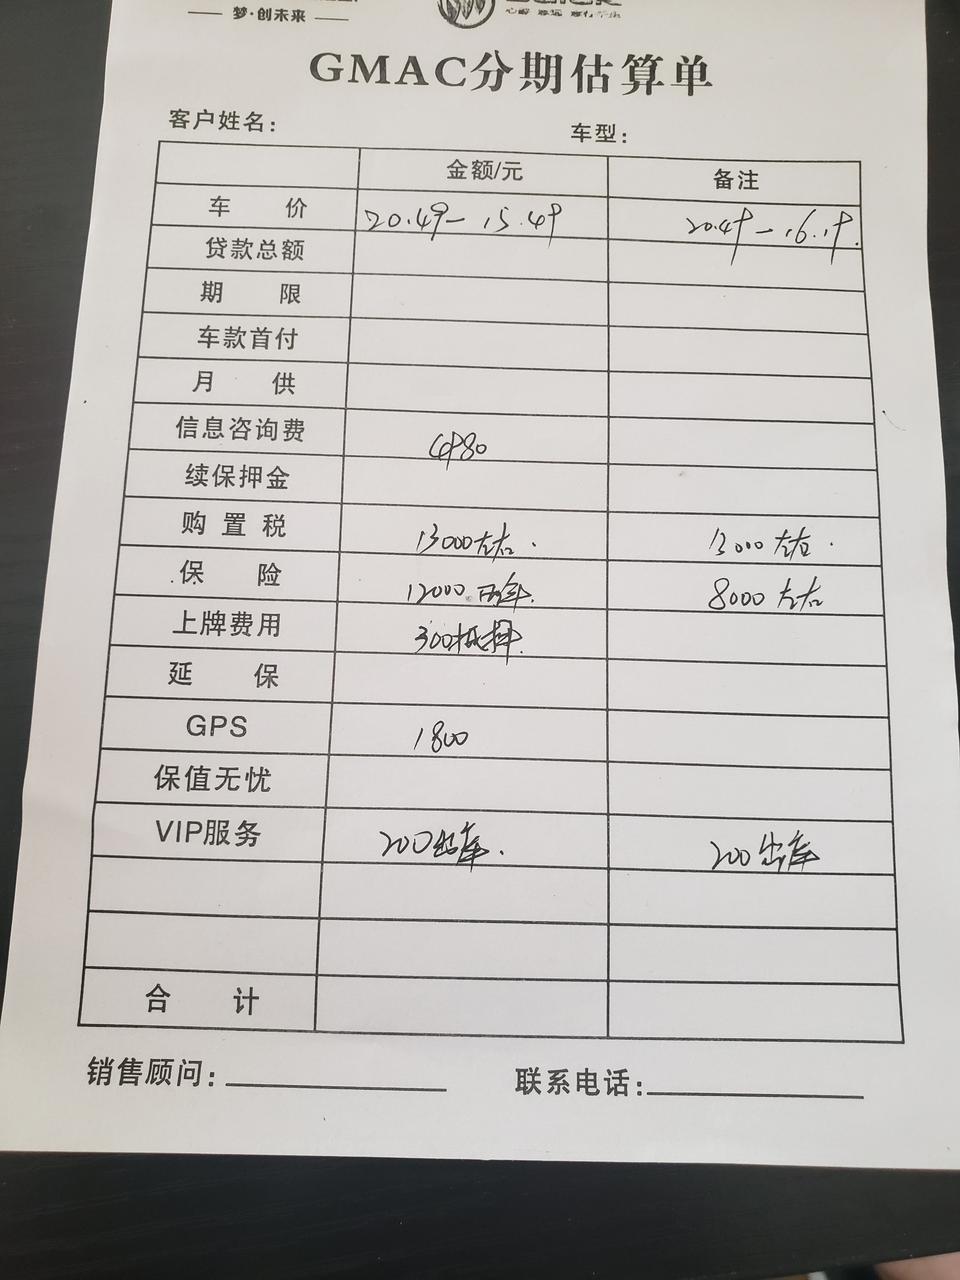 梦·创未来
GMAC分期估算单
客户姓名: 车型:
金额/元 备注
车 价 20.49-15.49 20.49-16.19.
贷款总额
期 限
车款首付
月 供
信息咨询费 4980
续保押金
购 置 税 13000左右. 13000左右.
保 险 12000两年. 8000左右
上牌费用 300抵押.
延 保
GPS 1800
保值无忧
VIP服务 200出库. 200出库
合 计
销售顾问: 联系电话: